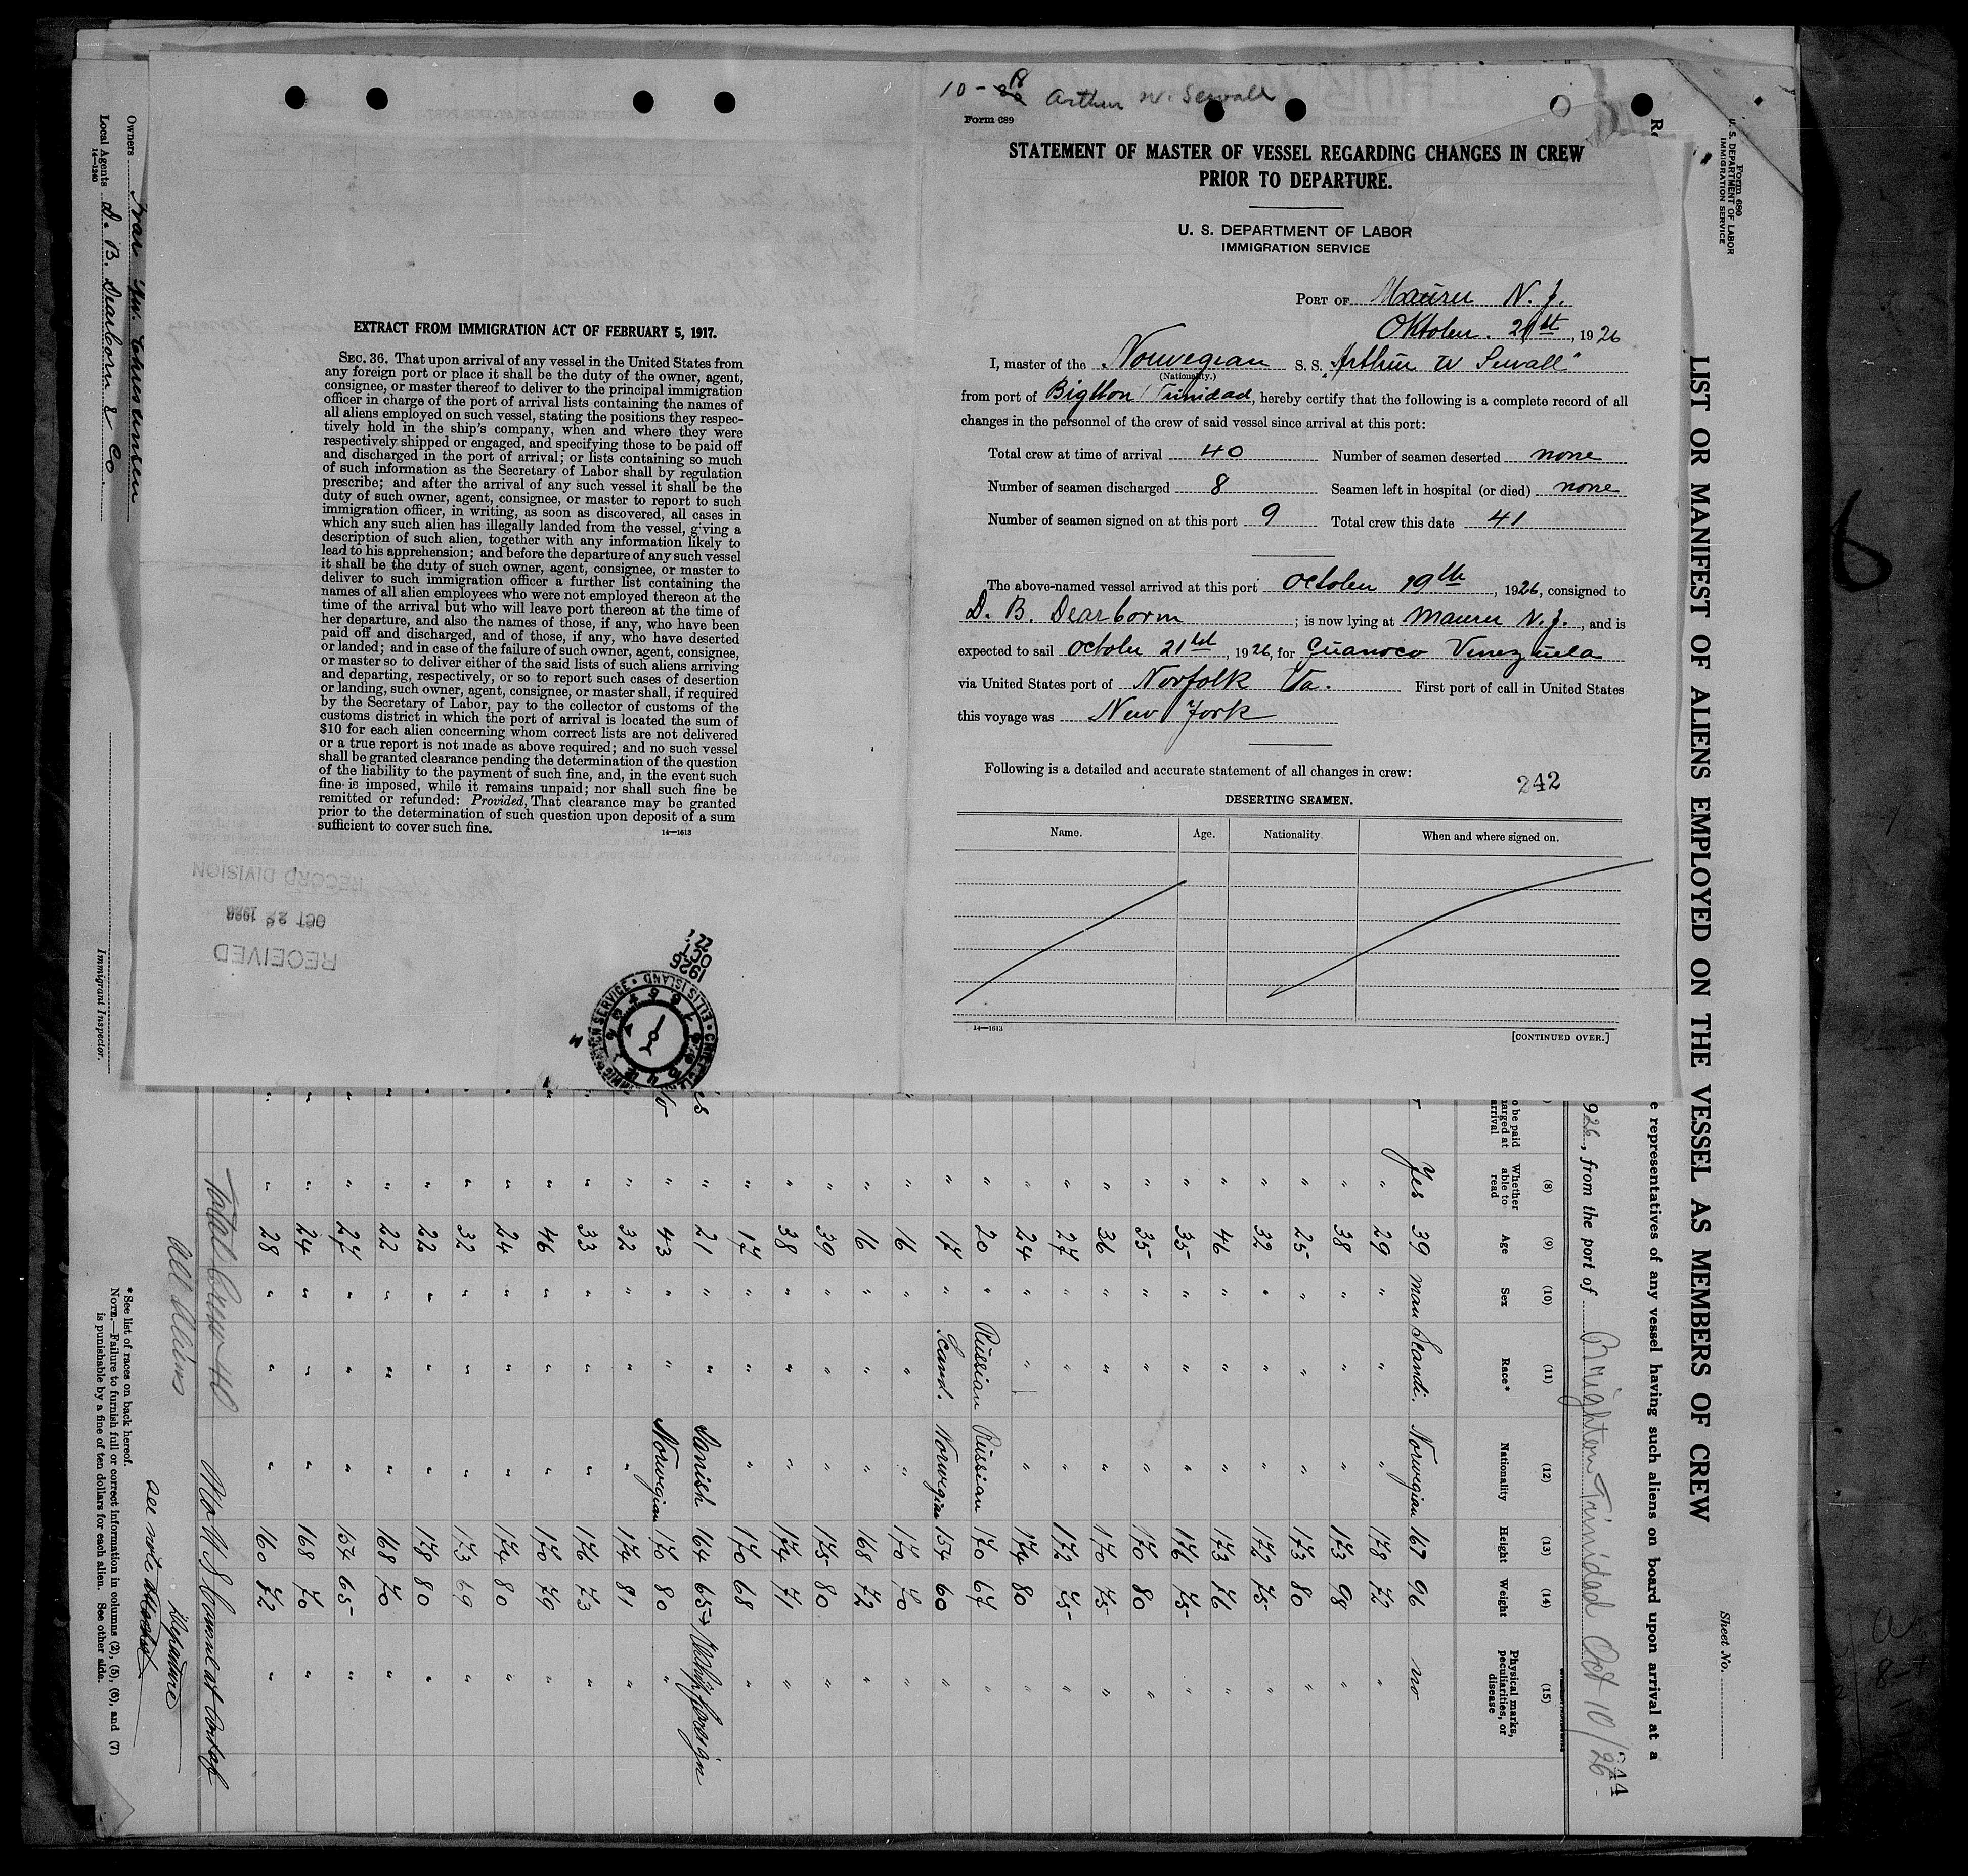 10-18 Arthur W. Sewall
Form 689
STATEMENT OF MASTER OF VESSEL REGARDING CHANGES IN CREW
PRIOR TO DEPARTURE.
U. S. DEPARTMENT OF LABOR
IMMIGRATION SERVICE
PORT OF Maurer N. J.
Oktober. 21st, 1926
I, master of the Norwegian S. S. "Arthur W Sewall"
(Nationality.)
from port of Trinidad, hereby certify that the following is a complete record of all
changes in the personnel of the crew of said vessel since arrival at this port:
Total crew at time of arrival 40 Number of seamen deserted none
Number of seamen discharged 8 Seamen left in hospital (or died) none
Number of seamen signed on at this port 9 Total crew this date 41
The above-named vessel arrived at this port October 19th, 1926, consigned to
D. B. Dearborn; is now lying at Maurer N. J., and is
expected to sail October 21st, 1926, for Guanoco Venezuela
via United States port of Norfolk Va. First port of call in United States
this voyage was New York
Following is a detailed and accurate statement of all changes in crew:
242
DESERTING SEAMEN.
Name. Age. Nationality. When and where signed on.
14—1613 [CONTINUED OVER.]
EXTRACT FROM IMMIGRATION ACT OF FEBRUARY 5, 1917.
SEC. 36. That upon arrival of any vessel in the United States from
any foreign port or place it shall be the duty of the owner, agent,
consignee, or master thereof to deliver to the principal immigration
officer in charge of the port of arrival lists containing the names of
all aliens employed on such vessel, stating the positions they respec-
tively hold in the ship's company, when and where they were
respectively shipped or engaged, and specifying those to be paid off
and discharged in the port of arrival; or lists containing so much
of such information as the Secretary of Labor shall by regulation
prescribe; and after the arrival of any such vessel it shall be the
duty of such owner, agent, consignee, or master to report to such
immigration officer, in writing, as soon as discovered, all cases in
which any such alien has illegally landed from the vessel, giving a
description of such alien, together with any information likely to
lead to his apprehension; and before the departure of any such vessel
it shall be the duty of such owner, agent, consignee, or master to
deliver to such immigration officer a further list containing the
names of all alien employees who were not employed thereon at the
time of the arrival but who will leave port thereon at the time of
her departure, and also the names of those, if any, who have been
paid off and discharged, and of those, if any, who have deserted
or landed; and in case of the failure of such owner, agent, consignee,
or master so to deliver either of the said lists of such aliens arriving
and departing, respectively, or so to report such cases of desertion
or landing, such owner, agent, consignee, or master shall, if required
by the Secretary of Labor, pay to the collector of customs of the
customs district in which the port of arrival is located the sum of
$10 for each alien concerning whom correct lists are not delivered
or a true report is not made as above required; and no such vessel
shall be granted clearance pending the determination of the question
of the liability to the payment of such fine, and, in the event such
fine is imposed, while it remains unpaid; nor shall such fine be
remitted or refunded: Provided, That clearance may be granted
prior to the determination of such question upon deposit of a sum
sufficient to cover such fine.
14—1613
RECEIVED
OCT 28 1926
RECORD DIVISION
1926
OCT
ELLIS ISLAND
Form 680
U. S. DEPARTMENT OF LABOR
IMMIGRATION SERVICE
Sheet No.
LIST OR MANIFEST OF ALIENS EMPLOYED ON THE VESSEL AS MEMBERS OF CREW
e representatives of any vessel having such aliens on board upon arrival at a
926, from the port of Brighton Trinidad Oct 10/26
(8) (9) (10) (11) (12) (13) (14) (15)
Whether able to read Age Sex Race* Nationality Height Weight Physical marks, peculiarities, or disease
Yes 39 man Scandi. Norwegian 167 96 no
" 29 " " " 178 72 "
" 38 " " " 173 98
" 25 " " " 173 80
" 32 " " " 172 75 "
" 46 " " " 173 76
" 35 " " " 176 75 "
" 35 " " " 170 80 "
" 36 " " " 170 75 "
" 27 " " " 172 75 "
" 24 " " " 174 80 "
" 20 " Russian Russian 170 67 "
" 17 " Scand. Norwegian 154 60 "
" 16 " " " 170 70
" 16 " " " 168 72 "
" 39 " " " 175 80 "
" 38 " " " 174 71 "
" 17 " " " 170 68 "
" 21 " " Danish 164 65
" 43 " " Norwegian 170 80 "
" 32 " " " 174 81 "
" 33 " " " 176 73 "
" 46 " " " 170 79 "
" 24 " " " 174 80 "
" 32 " " " 173 69 "
" 22 " " " 178 80 "
" 22 " " " 168 70 "
" 27 " " " 154 65 "
" 24 " " " 168 70 "
" 28 " " " 160 72 "
Total Crew 40 No U S Consul at
All Aliens
see note
Departure
* See list of races on back hereof.
NOTE.—Failure to furnish full or correct information in columns (2), (5), (6), and (7)
is punishable by a fine of ten dollars for each alien. See other side.
Owners Ivar An. Christensen
Local Agents D. B. Dearborn & Co.
14—1240
Immigrant Inspector.